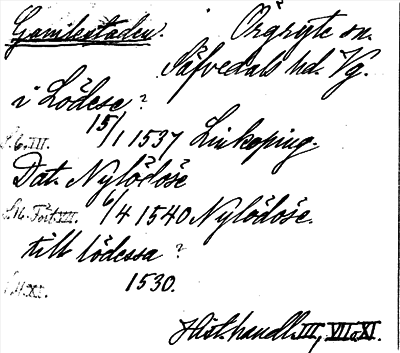 Gamlestaden. Örgryte sn.
Säfvedals hd. Vg.
i Lödese?
S.6.III. 15/1 1537 Linköping.
Dat. Nylödöse
S.16. Fört.VII. 6/4 1540 Nylödöse.
till lödessa?
XI. 1530.
Hist. handl. III, VII o. XI.